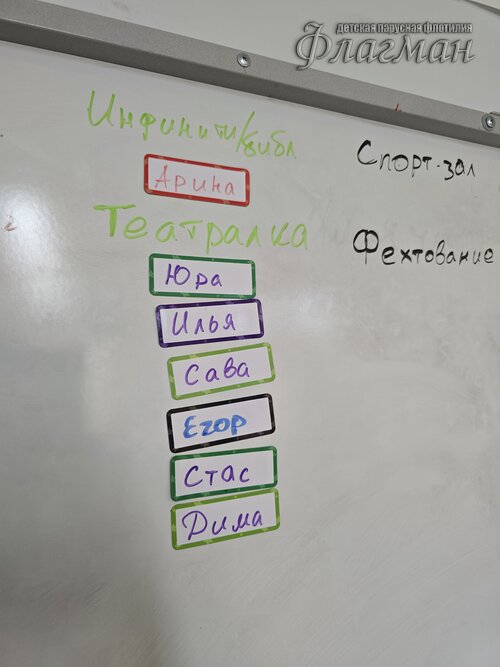 детская парусная флотилия
Флагман
Инфинити/библ
Арина
Театралка
Юра
Илья
Сава
Егор
Стас
Дима
Спорт-зал
Фехтование